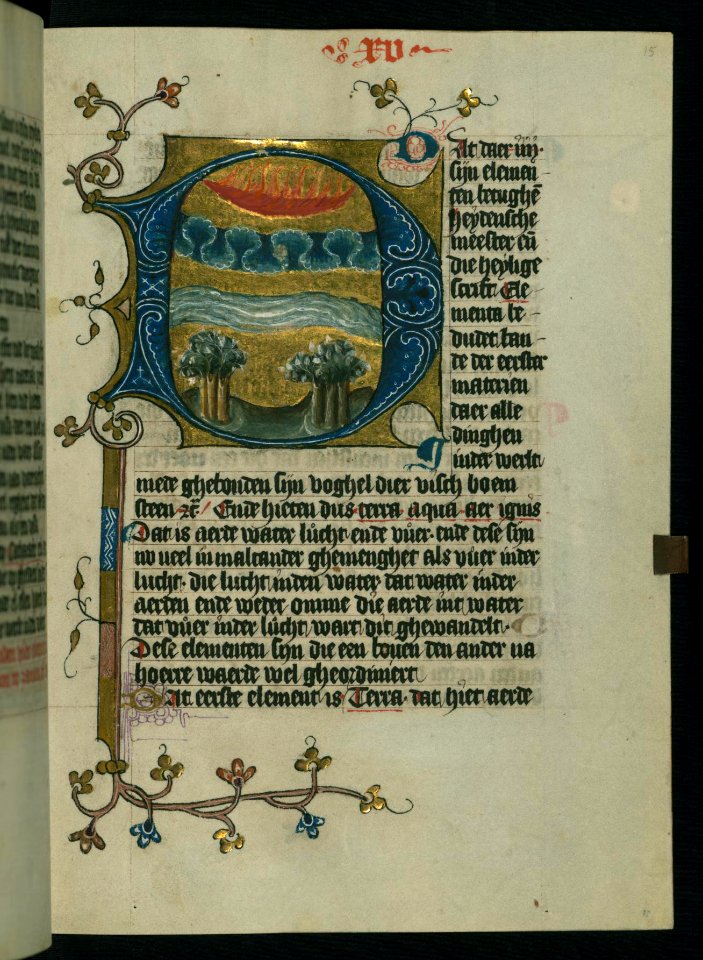 XV
15
At daer iiij
sijn elemen-
ten betughē
heydensche
meester en̄
die heylighe
scrift Ele-
menta be-
dudet han-
de der eerster
materien
daer alle
dinghen
in der werlt
mede ghebonden sijn voghel dier visch boem
steen ⁊c̄ Ende hieten dus terra aqua aer ignis
Dat is aerde water lucht ende vuer. ende dese sijn
wo ueel in malcander ghemenghet als vuer inder
lucht. die lucht inden water dat water inder
aerden ende weder omme die aerde int water
dat vuer inder lucht wart dit ghewandelt.
Dese elementen sijn die een bouen den ander na
hoerre waerde wel gheordiniert
Dat eerste element is Terra. dat hiet aerde